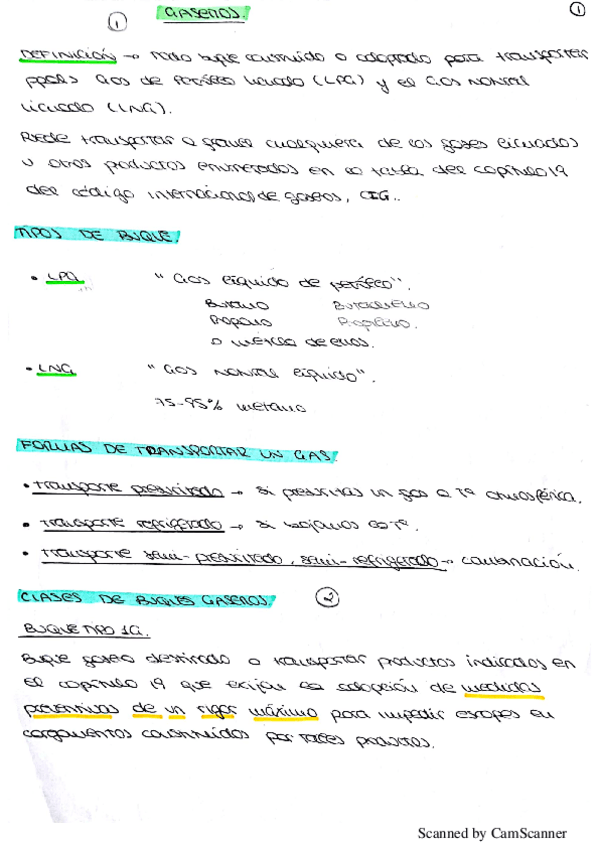 GASEROS.
1
1
DEFINICIÓN → Todo buque construido o adaptado para transportar
ppales Gas de Petróleo Licuado (LPG) y el Gas Natural
Licuado (LNG).
Puede transportar a granel cualquiera de los gases licuados
u otros productos enumerados en la tabla del capítulo 19
del código internacional de gaseros, CIG..
TIPOS DE BUQUE.
• LPG "Gas líquido de petróleo".
Butano Butadieno
Propano Propileno.
o mezcla de ellos.
• LNG "Gas Natural líquido".
75-95% metano
FORMAS DE TRANSPORTAR UN GAS.
• Transporte presurizado → si presurizas un gas a Tª atmosférica.
• Transporte refrigerado → si bajamos la Tª.
• Transporte semi-presurizado, semi-refrigerado → combinación.
CLASES DE BUQUES GASEROS. 2
BUQUE TIPO 1G.
Buque gasero destinado a transportar productos indicados en
el capítulo 19 que exijan la adopción de medidas
preventivas de un rigor máximo para impedir escapes en
cargamentos constituidos por tales productos.
Scanned by CamScanner